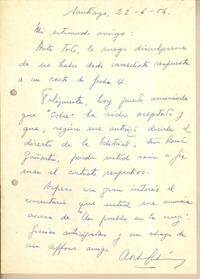 Santiago, 22-6-56.
Mi estimado amigo:
Ante todo, le ruego disculparme
de no haber dado inmediata respuesta
a su carta de fecha 4.
Felizmente, hoy puedo anunciarle
que "Cobre" ha sido aceptado y
que, según me anticipó desde el
directo de la Editorial, don René
puede usted venir a fir-
mar el contrato respectivo.
Espero con gran interés el
comentario que usted me anuncia
acerca de "Un pueblo en la
gracias anticipadas y un abrazo de
su affmo. amigo